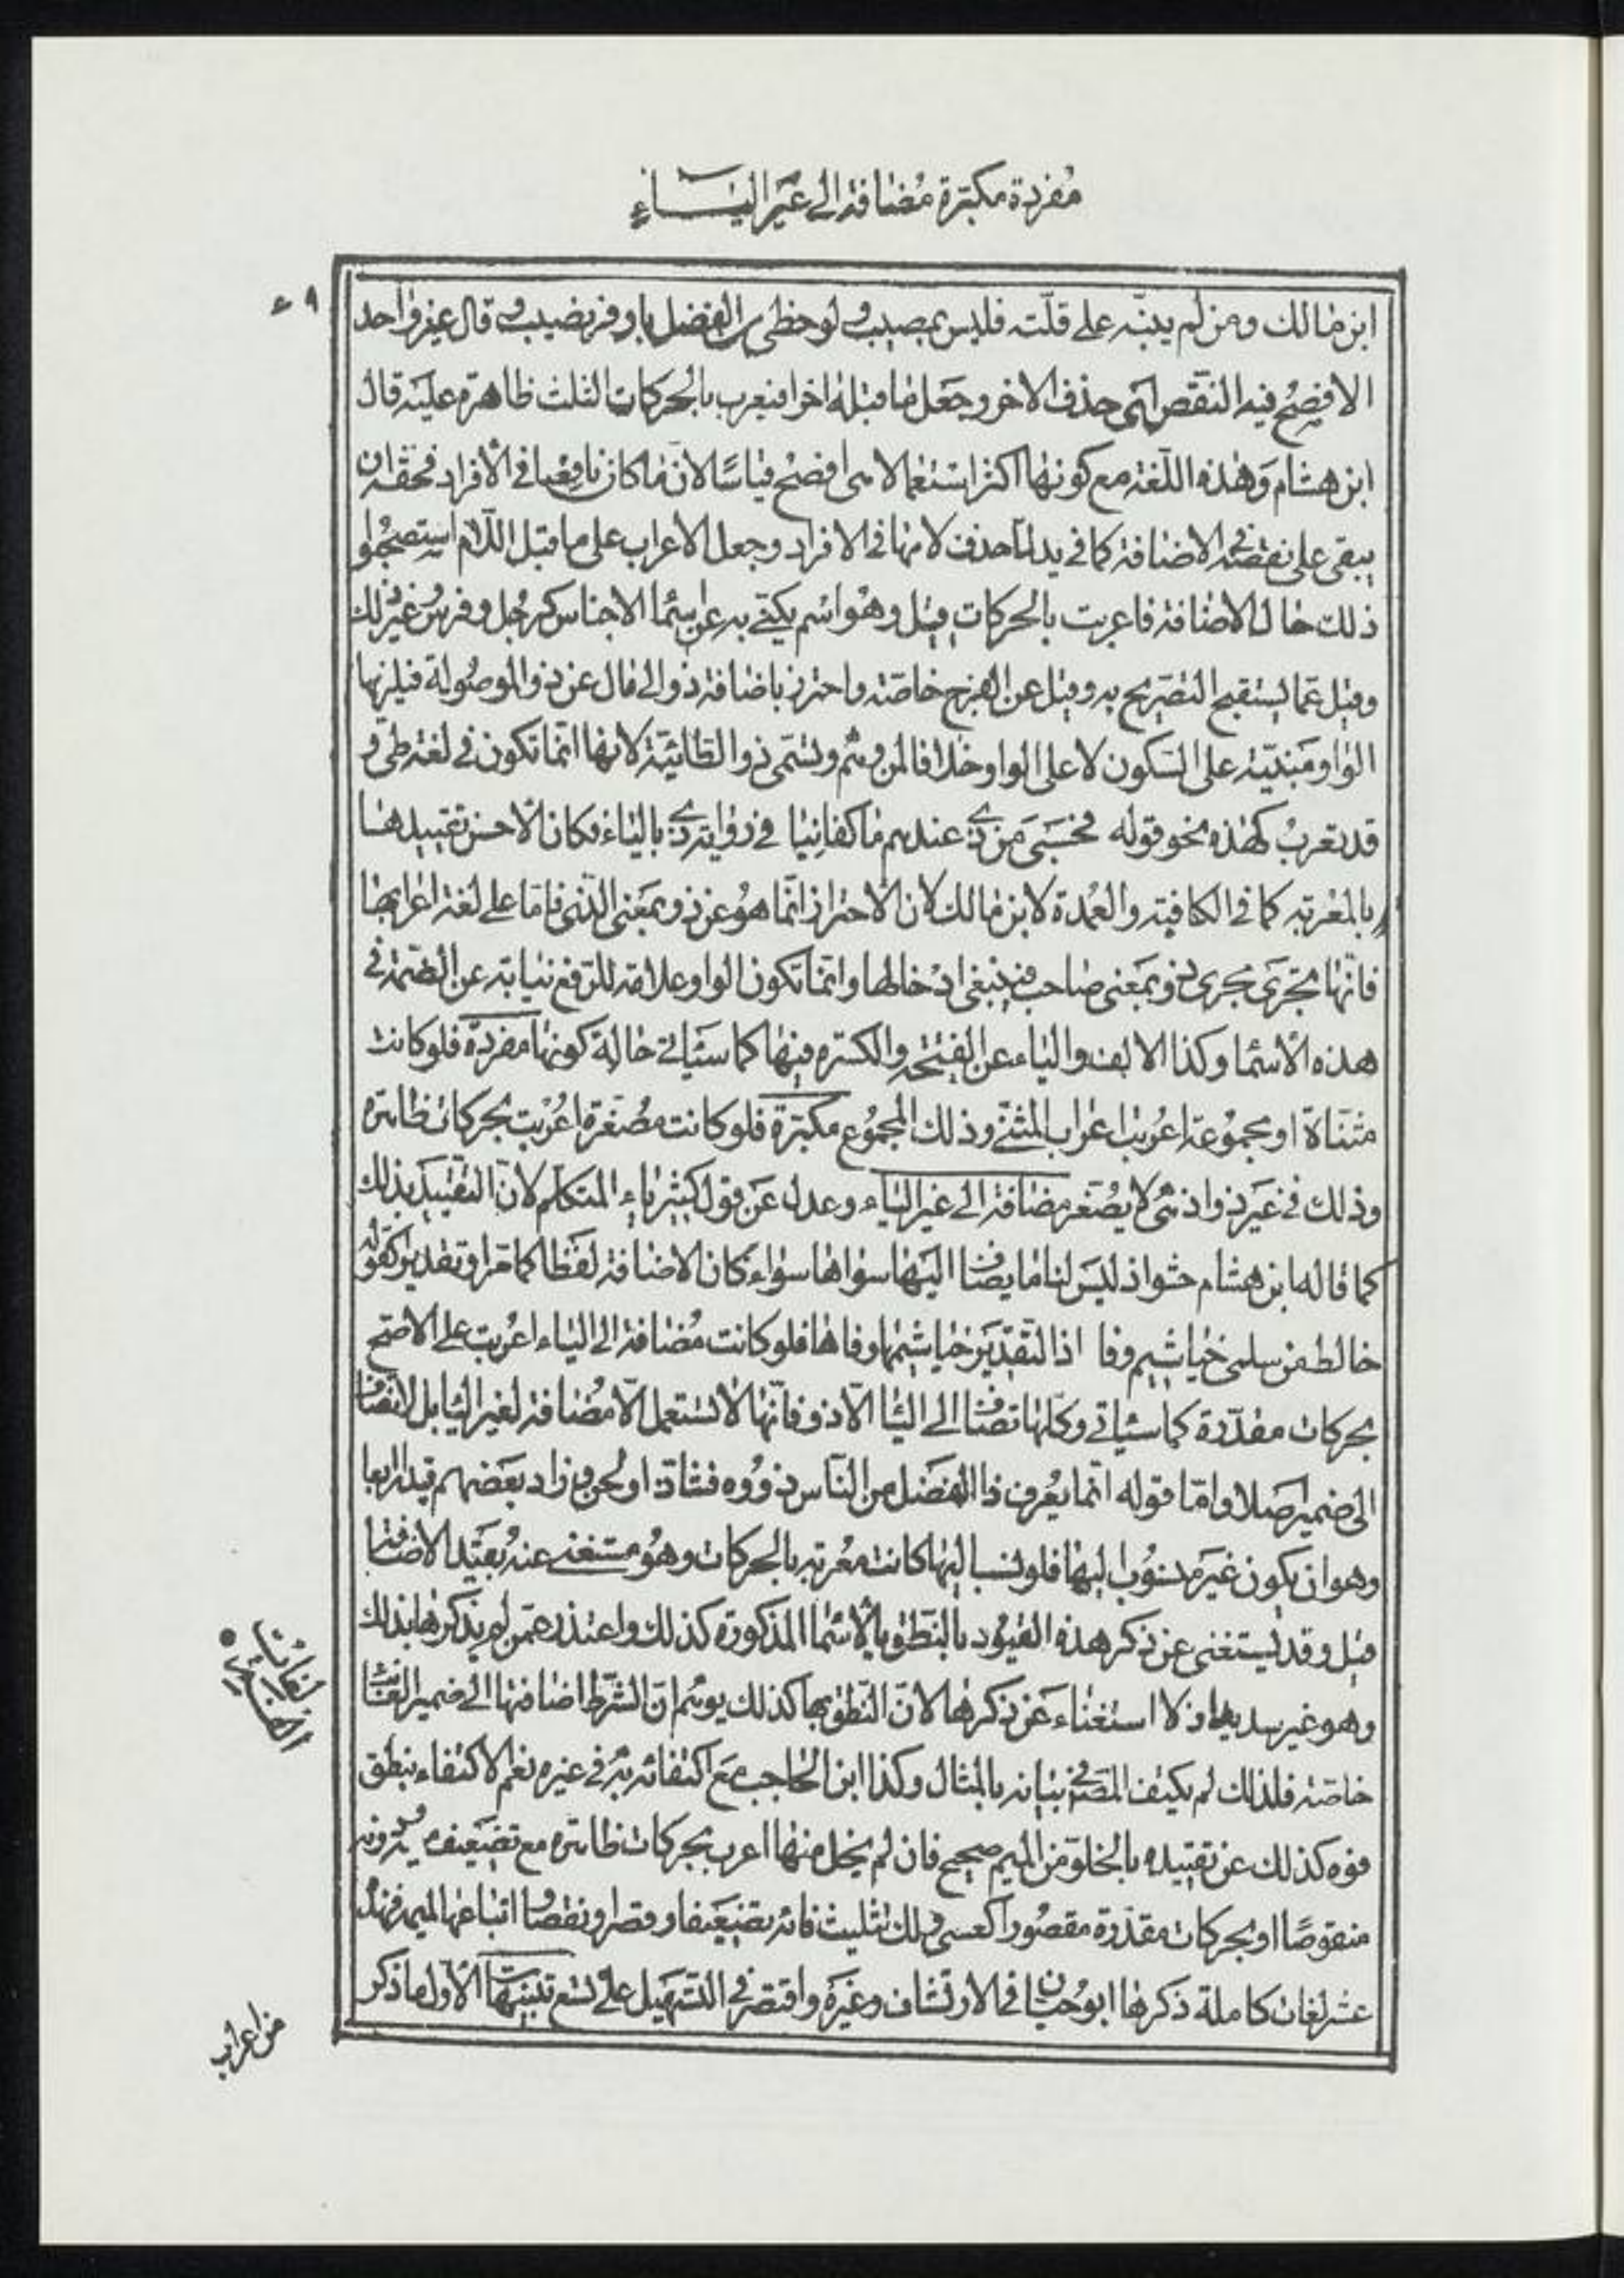 مفردة مكبرة مضافة الى غير الياء
٤٩
ابن مالك ومن لم ينبّه على قلّته فليس بمصيب ولو حظى من الفضل باوفر نصيب وقال غير واحد
الافصح فيه النقص اى حذف الاخر وجعل ما قبله اخرا فيعرب بالحركات الثلث ظاهرة عليه قال
ابن هشام وهذه اللّغة مع كونها اكثر استعمالا هى افصح قياسًا لانّ ما كان ناقصا فى الافراد فحقه ان
يبقى على نقصه فى الاضافة كما فى يد لمّا حذف لامها فى الافراد وجعل الاعراب على ما قبل اللّام استصحبوا
ذلك حال الاضافة فاعربت بالحركات قيل وهو اسم يكنّى به عن اسماء الاجناس كرجل وفرس وغير ذلك
وقيل عمّا يستقبح التصريح به وقيل عن الفرج خاصّة واحترز باضافة ذو الى مال عن ذو الموصولة فيلزمها
الواو مبنيّة على السكون لا على الواو خلافا لمن وهم وتسمّى ذو الطائيّة لانها انّما تكون فى لغة طىّ و
قد تعرب كهذه نحو قوله فحسبى من ذى عندهم ما كفانيا فى رواية ذى بالياء فكان الاحسن تقييدها
بالمعربة كما فى الكافية والعمدة لابن مالك لان الاحتراز انّما هو عن ذو بمعنى الّذى فامّا على لغة اعرابها
فانّها تجرى مجرى ذو بمعنى صاحب فينبغى ادخالها وانّما تكون الواو علامة للرّفع نيابة عن الضمّة فى
هذه الاسما وكذا الالف والياء عن الفتحة والكسرة فيها كما سياتى حالة كونها مفردة فلو كانت
مثنّاة او مجموعة اعربت اعراب المثنّى وذلك المجموع مكبّرة فلو كانت مصغّرة اعربت بحركات ظاهرة
وذلك فى غير ذو اذ هى لا يصغّر مضافة الى غير الياء وعدل عن قول كثير ياء المتكلم لانّ التقييد بذلك
كما قاله ابن هشام حشو اذ ليس لنا ما يضاف اليها سواها سواء كان الاضافة لفظا كما مر او تقديرا كقوله
خالط من سلمى خياشيم وفا اذ التّقدير خياشيمها وفاها فلو كانت مضافة الى الياء اعربت على الاصح
بحركات مقدّرة كما سياتى وكلها تضاف الى اليا الّا ذو فانّها لا تستعمل الّا مضافة لغير اليا بل لا تضاف
الى ضمير اصلا وامّا قوله انّما يعرف ذا الفضل من النّاس ذووه فشاذ او لحن وزاد بعضهم قيدا رابعا
وهو ان يكون غير منسوب اليها فلو نسب اليها كانت معربة بالحركات وهو مستغنى عنه بقيد الاضافة
قيل وقد يستغنى عن ذكر هذه القيود بالنّطق بالاسما المذكورة كذلك واعتذر عمّن لم يذكرها بذلك
وهو غير سديد اذ لا استغناء عن ذكرها لانّ النّطق بها كذلك يوهم انّ الشّرط اضافتها الى ضمير الغائب
خاصّة فلذلك لم يكتف المص فى بيانه بالمثال وكذا ابن الحاجب مع اكتفائه به فى غيره نعم الاكتفاء بنطق
فوه كذلك عن تقييده بالخلوّ من الميم صحيح فان لم يخل منها اعرب بحركات ظاهرة مع تضعيف ميمه ودونه
منقوصًا او بحركات مقدّرة مقصورا كعسى ولك تثليث فائه بتضعيفا وقصرا ونقصا واتباعها لميمه فهذه
عشر لغات كاملة ذكرها ابو حيّان فى الارتشاف وغيره واقتصر فى التسهيل على تسع تنبيهات الاوّل ما ذكر
من اعراب